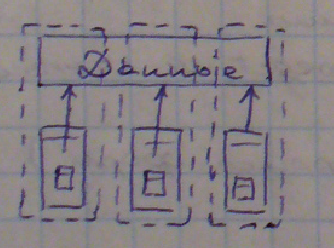 Данные